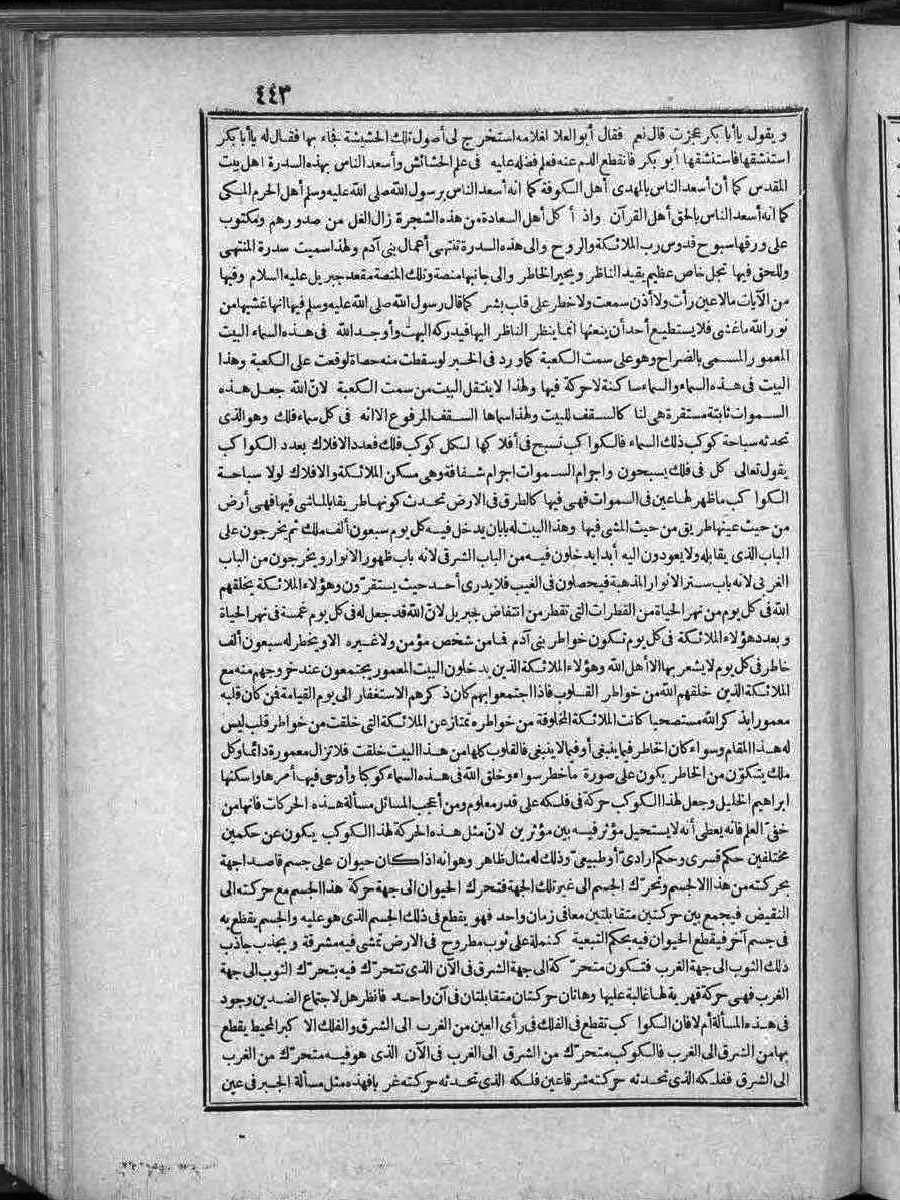 ٤٤٣
ويقول يا أبا بكر عجزت قال نعم فقال أبو العلا لغلامه استخرج لى أصول تلك الحشيشة فجاء بها فقال له يا أبا بكر
استنشقها فاستنشقها أبو بكر فانقطع الدم عنه فعلم فضله عليه فى علم الحشائش وأسعد الناس بهذه السدرة اهل بيت
المقدس كما أن أسعد الناس بالمهدى أهل الكوفة كما انه أسعد الناس برسول الله صلى الله عليه وسلم أهل الحرم المكى
كما انه أسعد الناس بالحق أهل القرآن واذا أكل أهل السعادة من هذه الشجرة زال الغل من صدورهم ومكتوب
على ورقها سبوح قدوس رب الملائكة والروح والى هذه السدرة تنتهى أعمال بنى آدم ولهذا سميت سدرة المنتهى
وللحق فيها تجل خاص عظيم يقيد الناظر ويحير الخاطر والى جانبها منصة وتلك المنصة مقعد جبريل عليه السلام وفيها
من الآيات مالا عين رأت ولا أذن سمعت ولا خطر على قلب بشر كما قال رسول الله صلى الله عليه وسلم فيها انها غشيها من
نور الله ما غشى فلا يستطيع أحد أن ينعتها انما ينظر الناظر اليها فيدركه البهت وأوجد الله فى هذه السماء البيت
المعمور المسمى بالضراح وهو على سمت الكعبة كما ورد فى الخبر لو سقطت منه حصاة لوقعت على الكعبة وهذا
البيت فى هذه السماء والسماء ساكنة لا حركة فيها ولهذا لا ينتقل البيت من سمت الكعبة لانّ الله جعل هذه
السموات ثابتة مستقرة هى لنا كالسقف للبيت ولهذا سماها السقف المرفوع الا انه فى كل سماء فلك وهو الذى
تحدثه سباحة كوكب ذلك السماء فالكواكب تسبح فى أفلاكها لكل كوكب فلك فعدد الافلاك بعدد الكواكب
يقول تعالى كل فى فلك يسبحون واجرام السموات اجرام شفافة وهى مسكن الملائكة والافلاك لولا سباحة
الكواكب ما ظهر لها عين فى السموات فهى فيها كالطرق فى الارض تحدث كونها طريقا بالماشى فيها فهى أرض
من حيث عينها طريق من حيث المشى فيها وهذا البيت له بابان يدخل فيه كل يوم سبعون ألف ملك ثم يخرجون على
الباب الذى يقابله ولا يعودون اليه أبدا يدخلون فيه من الباب الشرقى لانه باب ظهور الانوار ويخرجون من الباب
الغربى لانه باب ستر الانوار المذهبة فيحصلون فى الغيب فلا يدرى أحد حيث يستقرّون وهؤلاء الملائكة يخلقهم
الله فى كل يوم من نهر الحياة من القطرات التى تقطر من انتفاض جبريل لانّ الله قد جعل له فى كل يوم غمسة فى نهر الحياة
وبعدد هؤلاء الملائكة فى كل يوم تكون خواطر بنى آدم فما من شخص مؤمن ولا غيره الا ويخطر له سبعون ألف
خاطر فى كل يوم لا يشعر بها الا أهل الله وهؤلاء الملائكة الذين يدخلون البيت المعمور يجتمعون عند خروجهم منه مع
الملائكة الذين خلقهم الله من خواطر القلوب فاذا اجتمعوا بهم كان ذكرهم الاستغفار الى يوم القيامة فمن كان قلبه
معمورا بذكر الله مستصحبا كانت الملائكة المخلوقة من خواطره تمتاز عن الملائكة التى خلقت من خواطر قلب ليس
له هذا المقام وسواء كان الخاطر فيما ينبغى أو فيما لا ينبغى فالقلوب كلها من هذا البيت خلقت فلا تزال معمورة دائما وكل
ملك يتكوّن من الخاطر يكون على صورة ما خطر سواء وخلق الله فى هذه السماء كوكبا وأوحى فيها أمرها واسكنها
ابراهيم الخليل وجعل لهذا الكوكب حركة فى فلكه على قدر معلوم ومن أعجب المسائل مسألة هذه الحركات فانها من
خفىّ العلم فانه يعطى أنه لا يستحيل مؤثر فيه بين مؤثرين لانّ مثل هذه الحركة لهذا الكوكب يتكون عن حكمين
مختلفين حكم قسرى وحكم ارادىّ أو طبيعىّ وذلك له مثال ظاهر وهو انه اذا كان حيوان على جسم قاصدا جهة
بحركته من هذا الجسم وتحرّك الجسم الى غير تلك الجهة فتحرك الحيوان الى جهة حركة هذا الجسم مع حركته الى
النقيض فيجمع بين حركتين متقابلتين معا فى زمان واحد فهو يقطع فى ذلك الجسم الذى هو عليه والجسم يقطع به
فى جسم آخر فيقطع الحيوان فيه بحكم التبعية كنملة على ثوب مطروح فى الارض تمشى فيه مشرقة ويجذب جاذب
ذلك الثوب الى جهة الغرب فتكون متحرّكة الى جهة الشرق فى الآن الذى تتحرّك فيه بتحرّك الثوب الى جهة
الغرب فهى حركة قهرية لها غالبة عليها وهاتان حركتان متقابلتان فى آن واحد فانظر هل لاجتماع الضدين وجود
فى هذه المسألة أم لا فان الكواكب تقطع فى الفلك فى رأى العين من الغرب الى الشرق والفلك الاكبر المحيط يقطع
بها من الشرق الى الغرب فالكوكب متحرّك من الشرق الى الغرب فى الآن الذى هو فيه متحرّك من الغرب
الى الشرق ففلكه الذى تحدثه حركته شرقا عين فلكه الذى تحدثه حركته غربا فهذه مثل مسألة الجبر فى عين